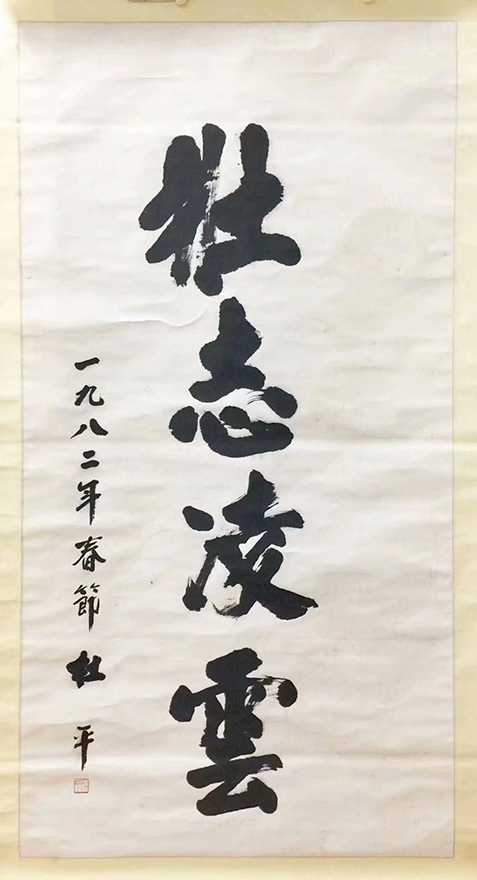 壯志凌雲
一九八二年春節 杜平